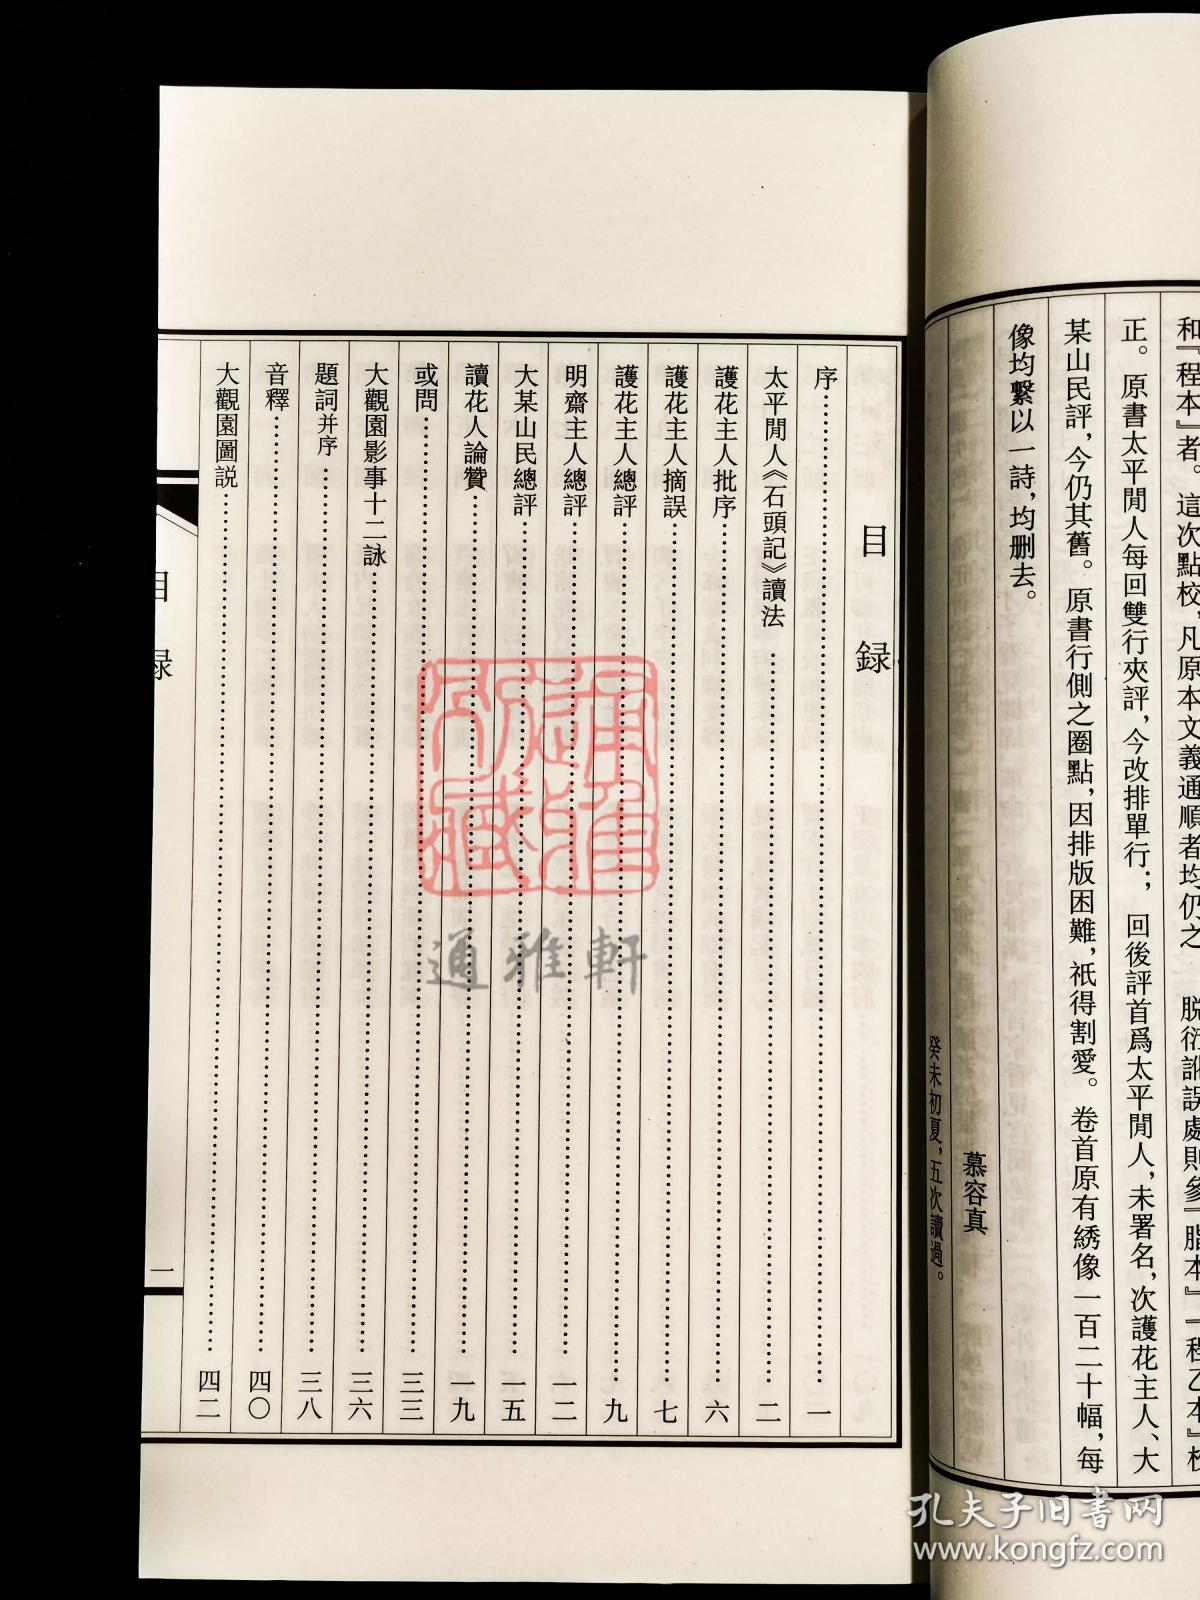 和『程本』者。這次點校，凡原本文義通順者均仍之
正。原書太平閒人每回雙行夾評，今改排單行；回後評首爲太平閒人，未署名，次護花主人、大
某山民評，今仍其舊。原書行側之圈點，因排版困難，祇得割愛。卷首原有綉像一百二十幅，每
像均繫以一詩，均删去。
慕容真
癸未初夏，五次讀過。
目録
序……一
太平閒人《石頭記》讀法……二
護花主人批序……六
護花主人摘誤……七
護花主人總評……九
明齋主人總評……一二
大某山民總評……一五
讀花人論贊……一九
或問……三三
大觀園影事十二詠……三六
題詞并序……三八
音釋……四〇
大觀園圖説……四二
目録
一
通雅軒
孔夫子旧书网
www.kongfz.com